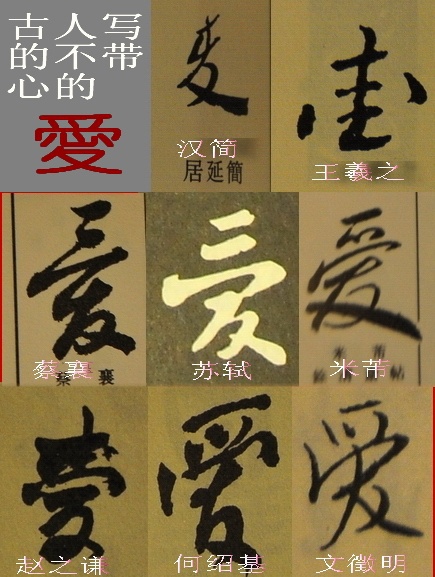 古人写
的不带
心的
愛
爱
汉简
居延簡
爱
王羲之
爱
蔡襄
爱
苏轼
爱
米芾
爱
赵之谦
爱
何绍基
爱
文徵明